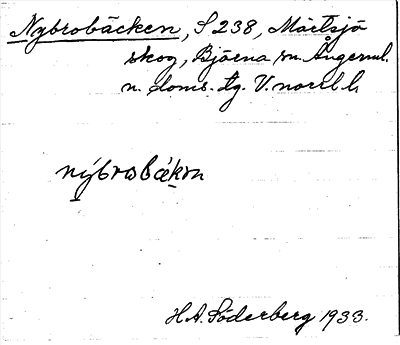 Nybrobäcken, S 238, Mårtsjö
skog, Björna sn. Ångerml.
n. doms. tg. V.norrl.l.
nýbrobäkɷn
H.A. Söderberg 1933.